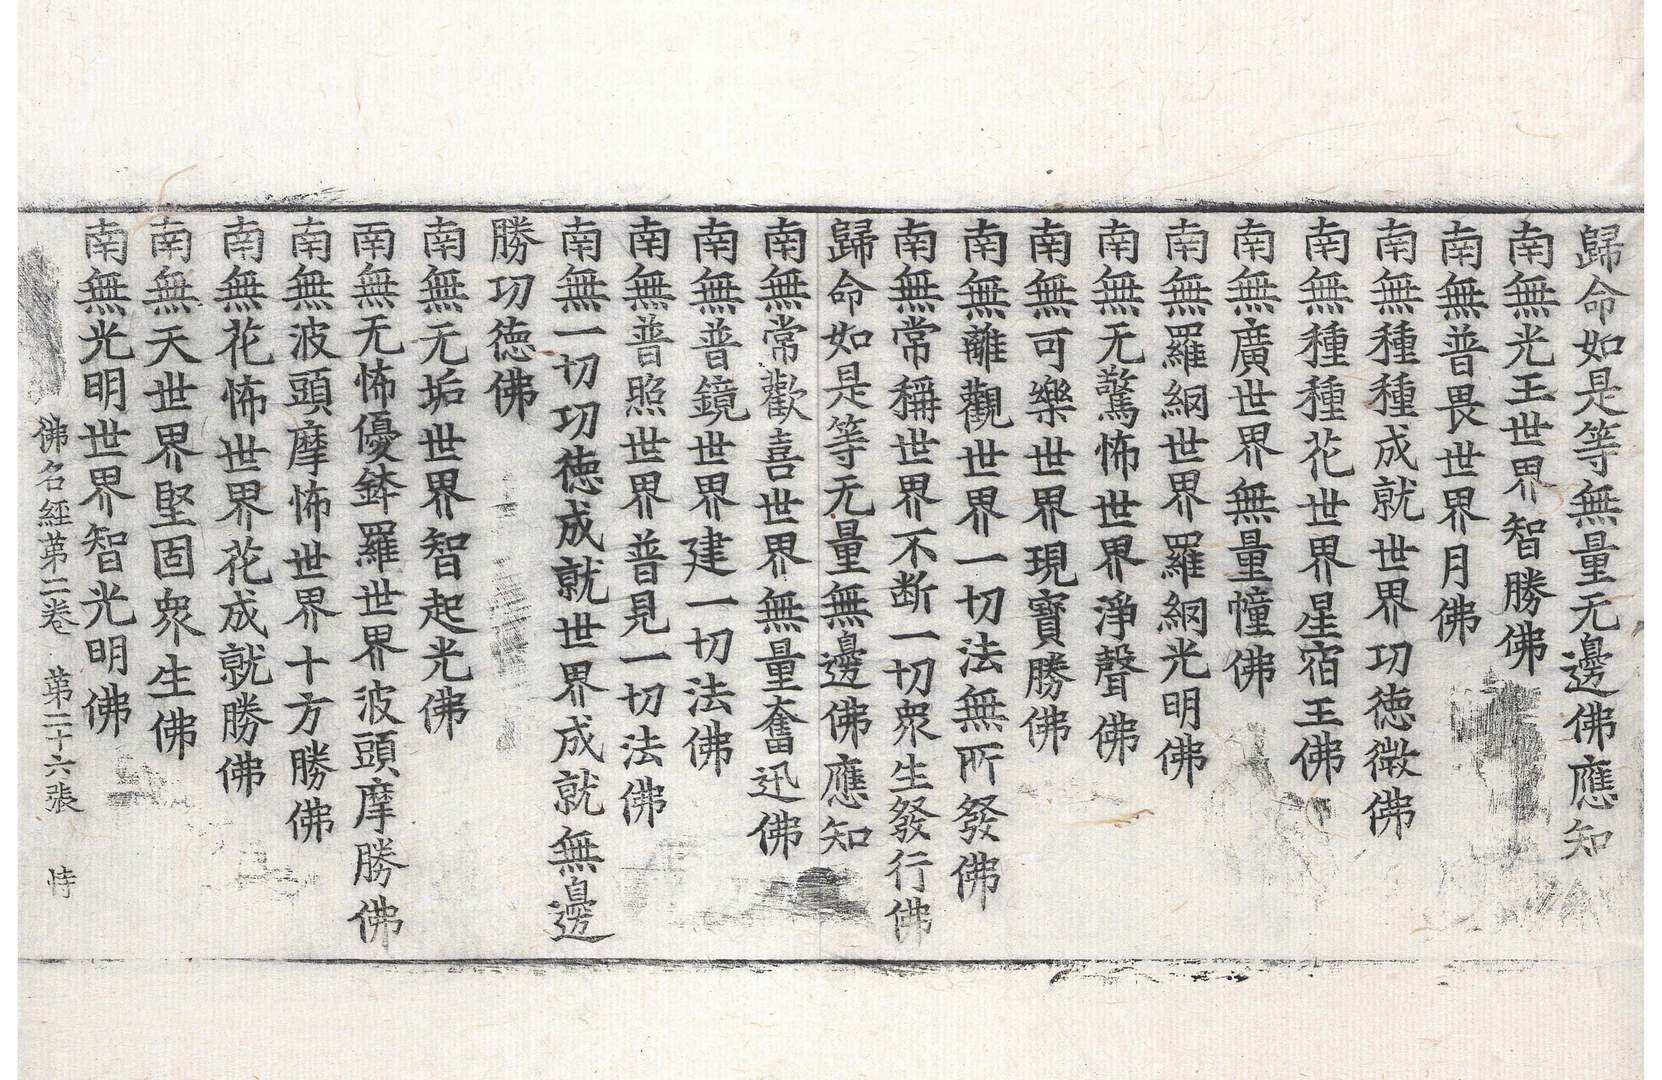 歸命如是等無量无邊佛應知
南無光王世界智勝佛
南無普畏世界月佛
南無種種成就世界功徳微佛
南無種種花世界星宿王佛
南無廣世界無量幢佛
南無羅網世界羅網光明佛
南無无驚怖世界淨聲佛
南無可樂世界現寶勝佛
南無離觀世界一切法無所發佛
南無常稱世界不断一切衆生發行佛
歸命如是等无量無邊佛應知
南無常歡喜世界無量奮迅佛
南無普鏡世界建一切法佛
南無普照世界普見一切法佛
南無一切功徳成就世界成就無邊
勝功徳佛
南無无垢世界智起光佛
南無无怖優鉢羅世界波頭摩勝佛
南無波頭摩怖世界十方勝佛
南無花怖世界花成就勝佛
南無天世界堅固衆生佛
南無光明世界智光明佛
佛名經第二卷 第二十六張 恃